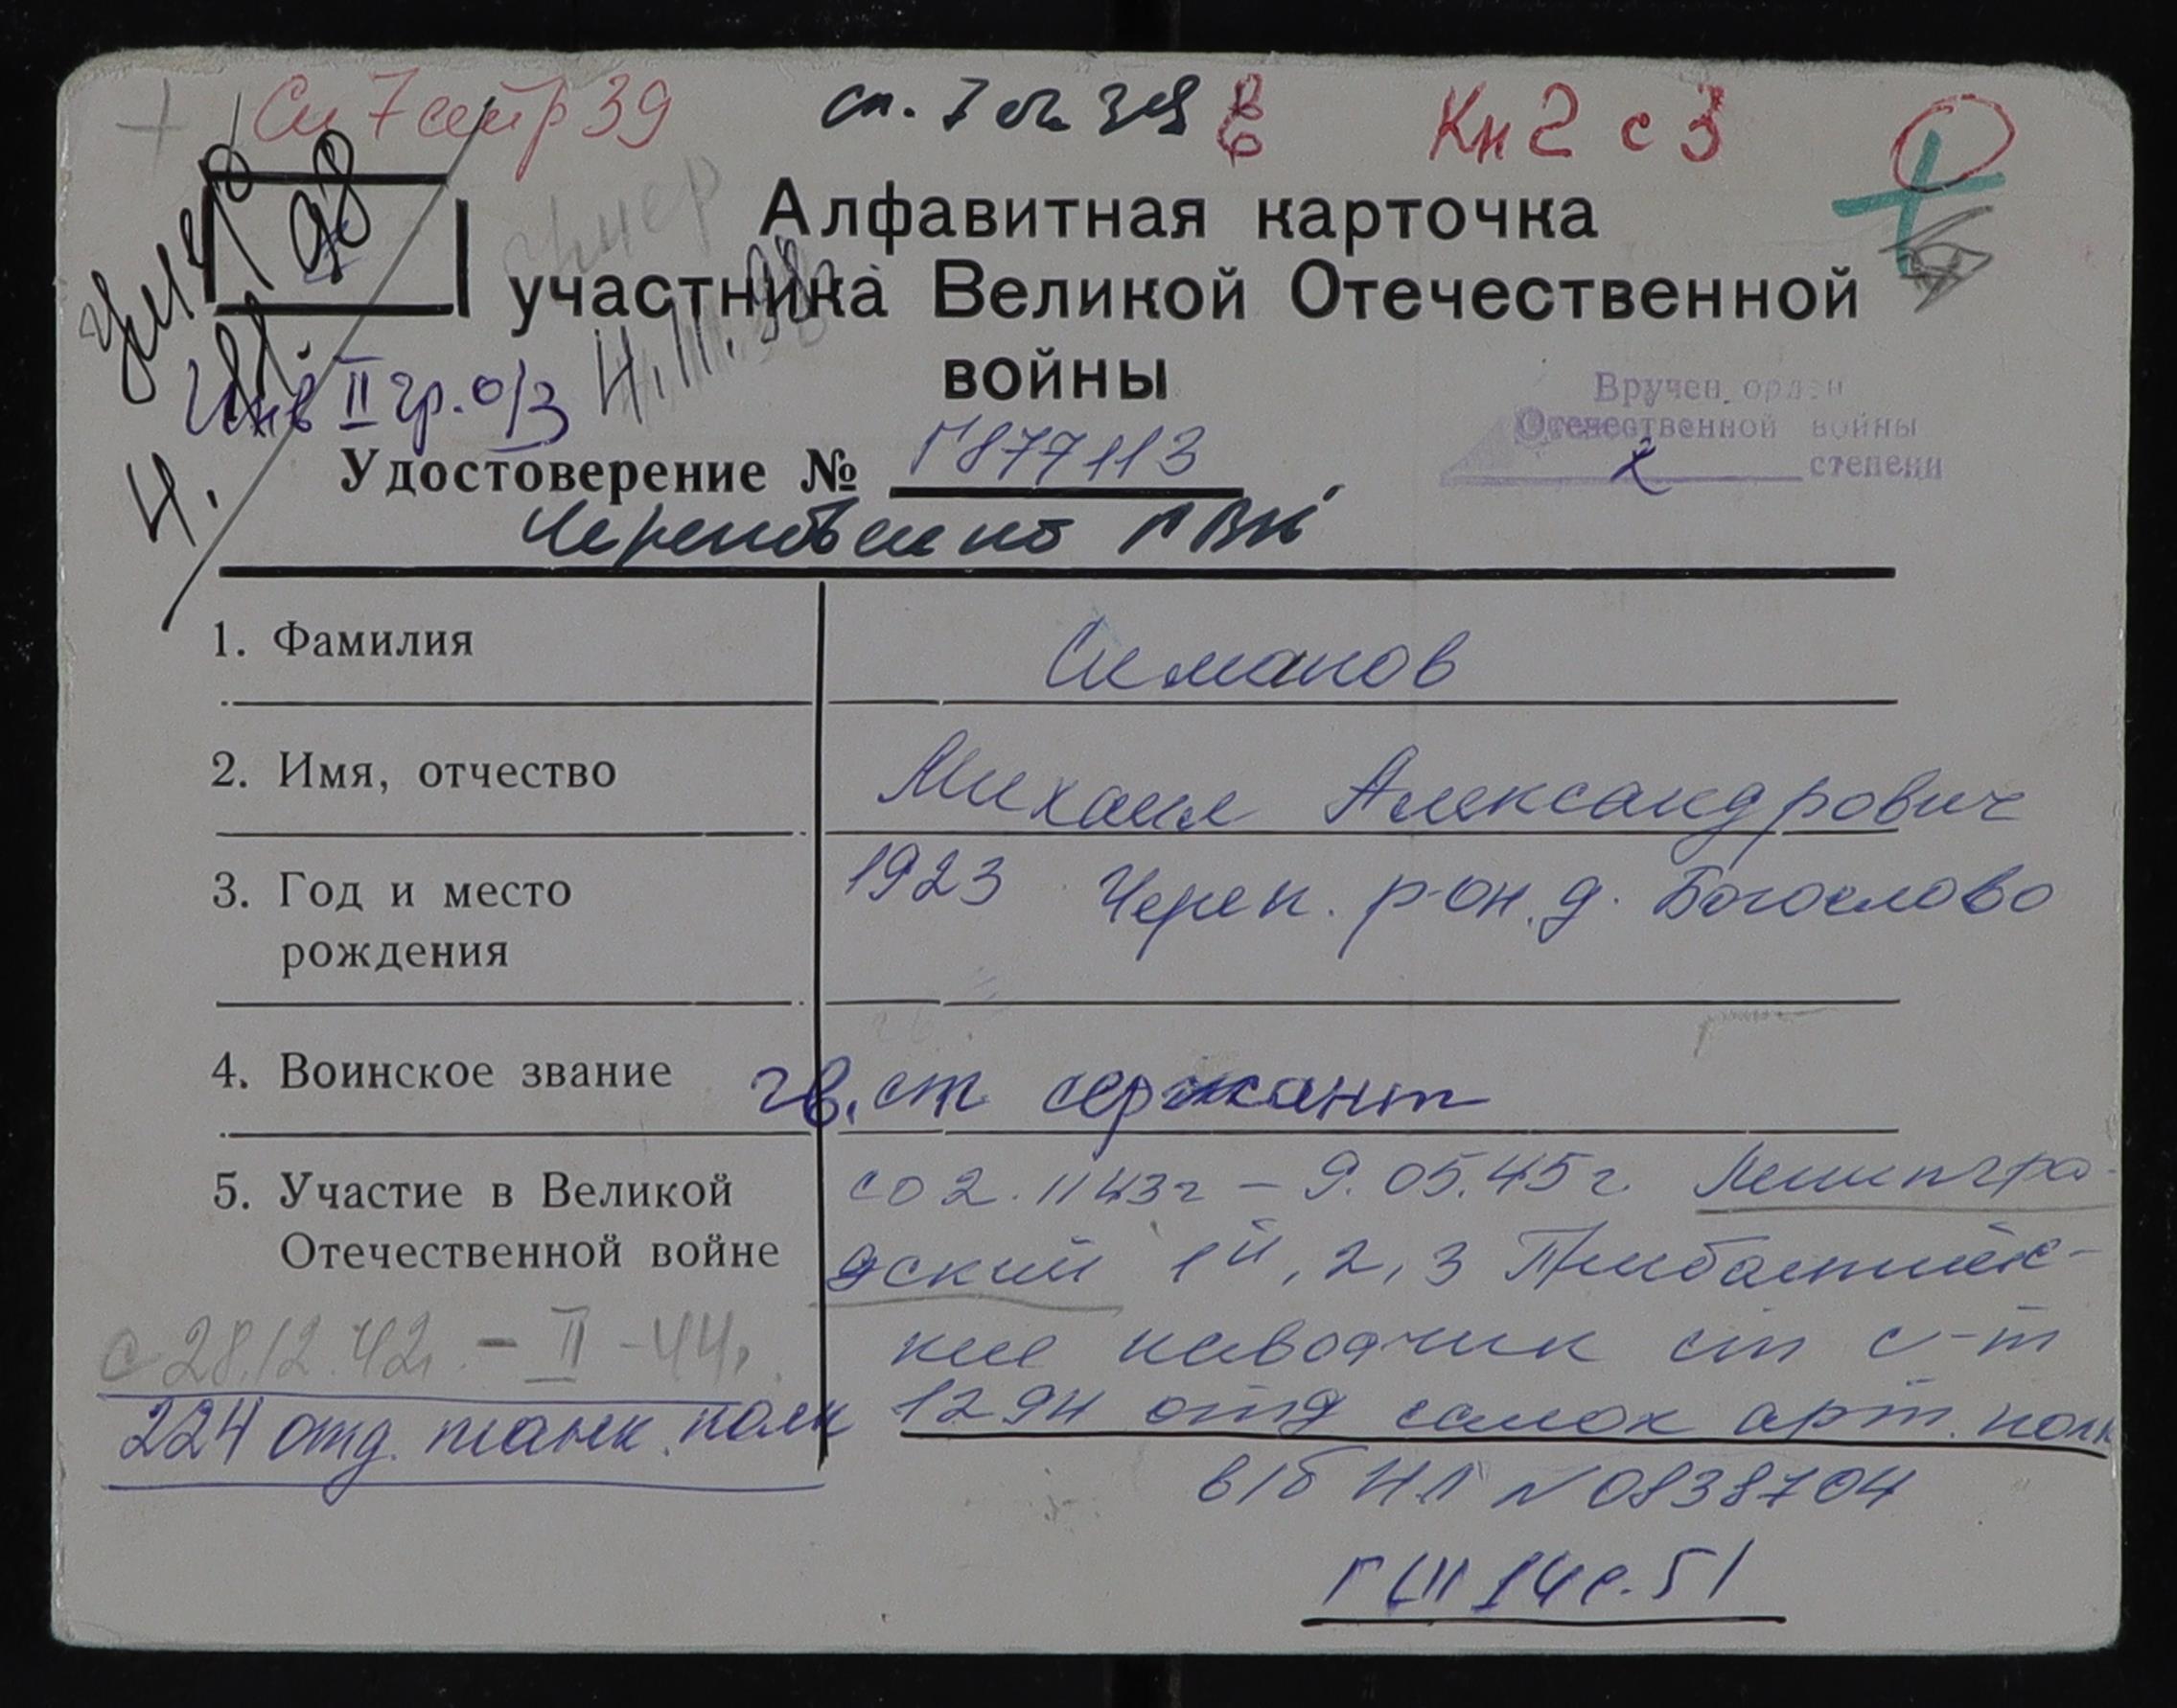 Сп 7 стр 39
сп. 7 стр 39 В
Кн 2 с 3
Умер
98
Умер
4.III.98
Алфавитная карточка
участника Великой Отечественной
войны
Инв II гр. о/з
Вручен орден
Отечественной войны
2 степени
Удостоверение № Г877113
РВК
1. Фамилия Симанов
2. Имя, отчество Михаил Александрович
3. Год и место рождения 1923 Череп. р-он. д. Богослово
4. Воинское звание гв. ст сержант
5. Участие в Великой Отечественной войне
со 2.11 43г – 9.05.45г. Ленингра-
дский 1й, 2, 3 Прибалтийс-
кие наводчик ст с-т
1294 отд самох арт. полк
в/б НЛ № 0838704
с 28.12.42г. – II – 44г.
224 отд. танк. полк
14 с. 51